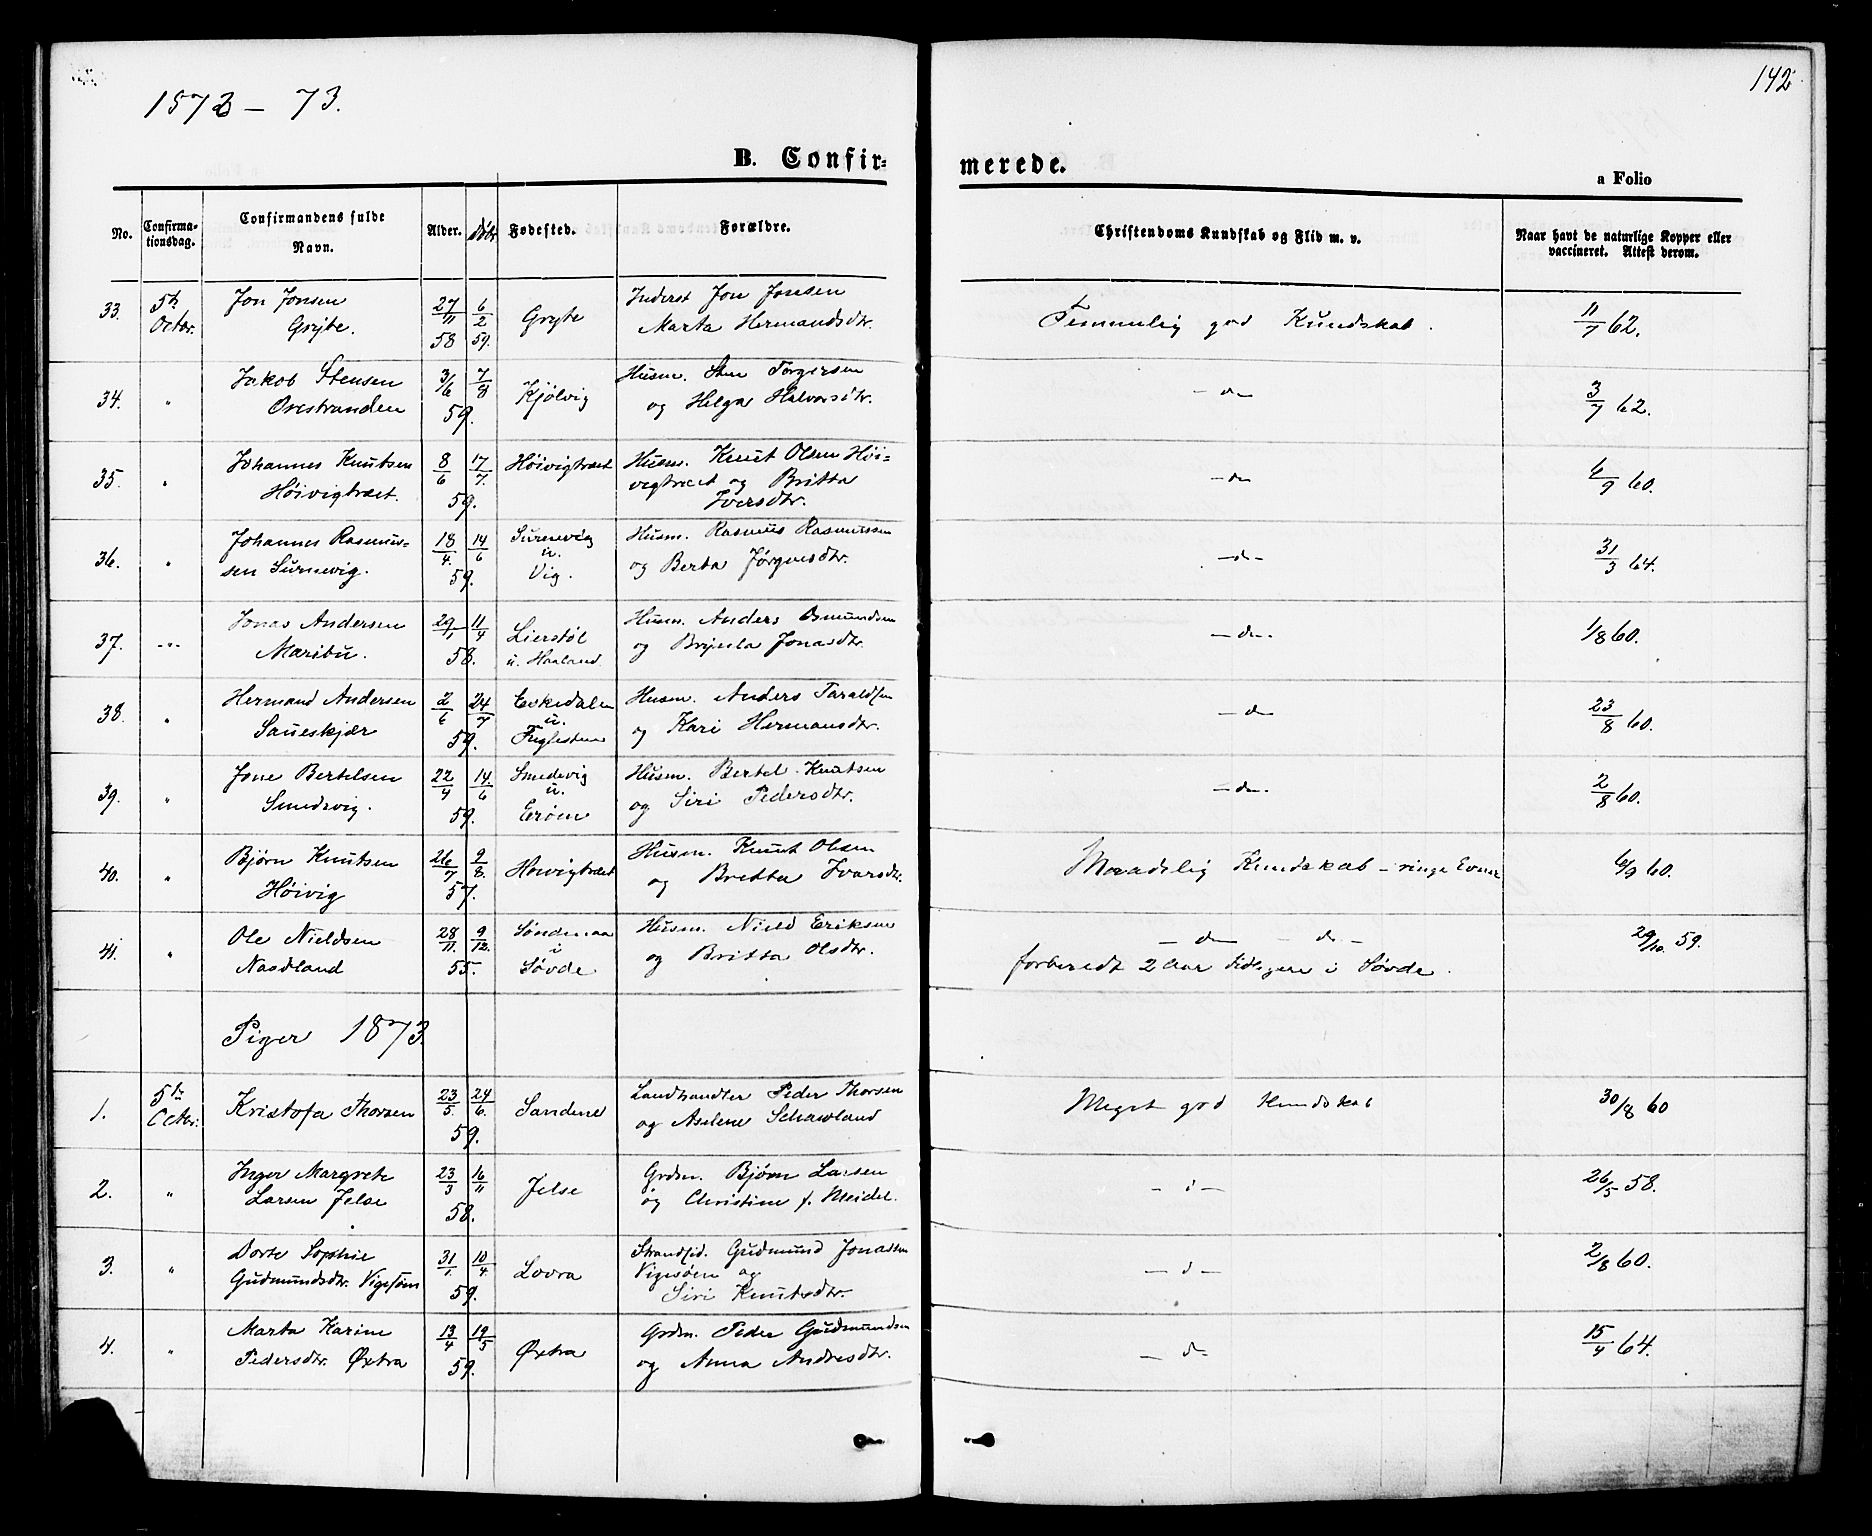 1872 – 73.
142
B. Confir=
merede.
a Folio
No.
Confirma-
tionsdag.
Confirmandens fulde
Navn.
Alder.
Døbt
Fødested.
Forældre.
Christendoms Kundskab og Flid m. v.
Naar havt de naturlige Kopper eller
vaccineret. Attest derom.
33. 5te Octbr. Jon Jonsen Gryte. 27/11 58 6/2 59. Gryte Inderst Jon Jonsen Marta Hermandsdtr. Temmelig god Kundskab. 11/7 62.
34. " Jakob Stensen Orestranden 3/6 59. 7/8 Kjølvig Husm. Sten Torgersen og Helga Halvorsdtr. – d – 3/7 62.
35. " Johannes Knutsen Høivigtræet. 8/6 59. 17/7. Høivigtræet Husm. Knut Olsen Høi= vigtræet og Britta Iversdtr. – do 6/9 60.
36. " Johannes Rasmus= sen Surnevig. 18/4. 59. 14/6 Surnevig u. Vig. Husm. Rasmus Rasmussen og Berta Jørgensdtr. – d – 31/3 64.
37. –"– Jonas Andersen Maribu. 29/1 58. 11/4 Lierstøl u. Haaland. Husm. Anders Osmundsen og Brynla Jonasdtr. – do – 1/8 60.
38. " Hermand Andersen Saueskjær 2/6 59. 24/7 Eskedalen u. Fuglestein Husm. Anders Taraldsen og Kari Hermansdtr. – do 23/8 60.
39. " Jone Bertelsen Smedsvig. 22/4 59. 14/6 Smedsvig u. Erøen Husm. Bertel Knutsen og Siri Pedersdtr. – do – 2/8 60.
40. " Bjørn Knutsen Høivig 26/7 57. 9/8. Høivigtræet Husm. Knut Olsen og Britta Ivarsdtr. Maadelig Kundskab – ringe Evner 6/9 60.
41. " Ole Nieldsen Nasdland 28/11. 55. 9/12. Søndenaa i Søvde Husm. Nield Eriksen og Britta Olsdtr. – do – do – forberedt 2 Aar tidligere i Søvde. 29/10 59.
Piger 1873.
1. 5te Octbr: Kristofa Thorsen 23/5. 59. 24/6. Sandene Landhandler Peder Thorsen og Aselene Schawland Meget god Kundskab 30/8 60
2. " Inger Margrete Larsen Jelse 23/3 58. 16/11 Jelse Grdm. Bjørn Larsen og Christine f. Meidel. – d – 26/5 58.
3. " Dorte Sophie Gudmundsdtr. Vigesøen 31/1. 59. 10/4. Lovra Strandsid. Gudmund Jonassen Vigesøen og Siri Knutsdtr. – d – 2/8 60.
4. " Marta Karine Pedersdtr. Øxtra 13/4 59. 19/5 Øxtra Grdm. Peder Gudmundsen og Anna Andresdtr. – do 15/4 64.